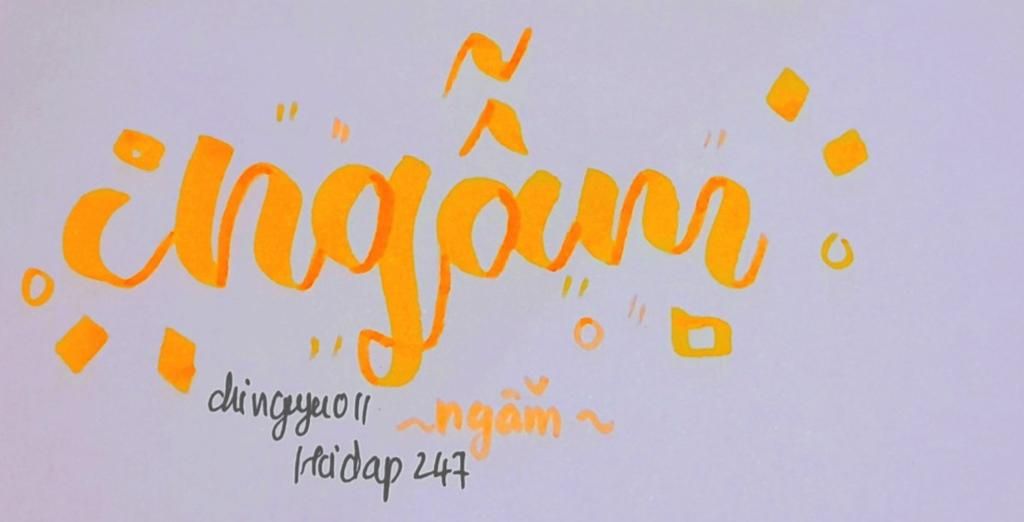 ngẫm
~ngẫm~
Hoidap 247